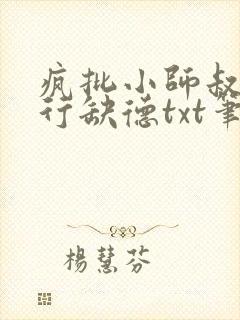 疯批小師叔
行缺德txt筆
楊慧芬